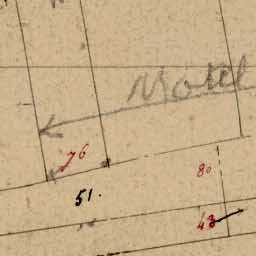 Motel
76
80
51.
43